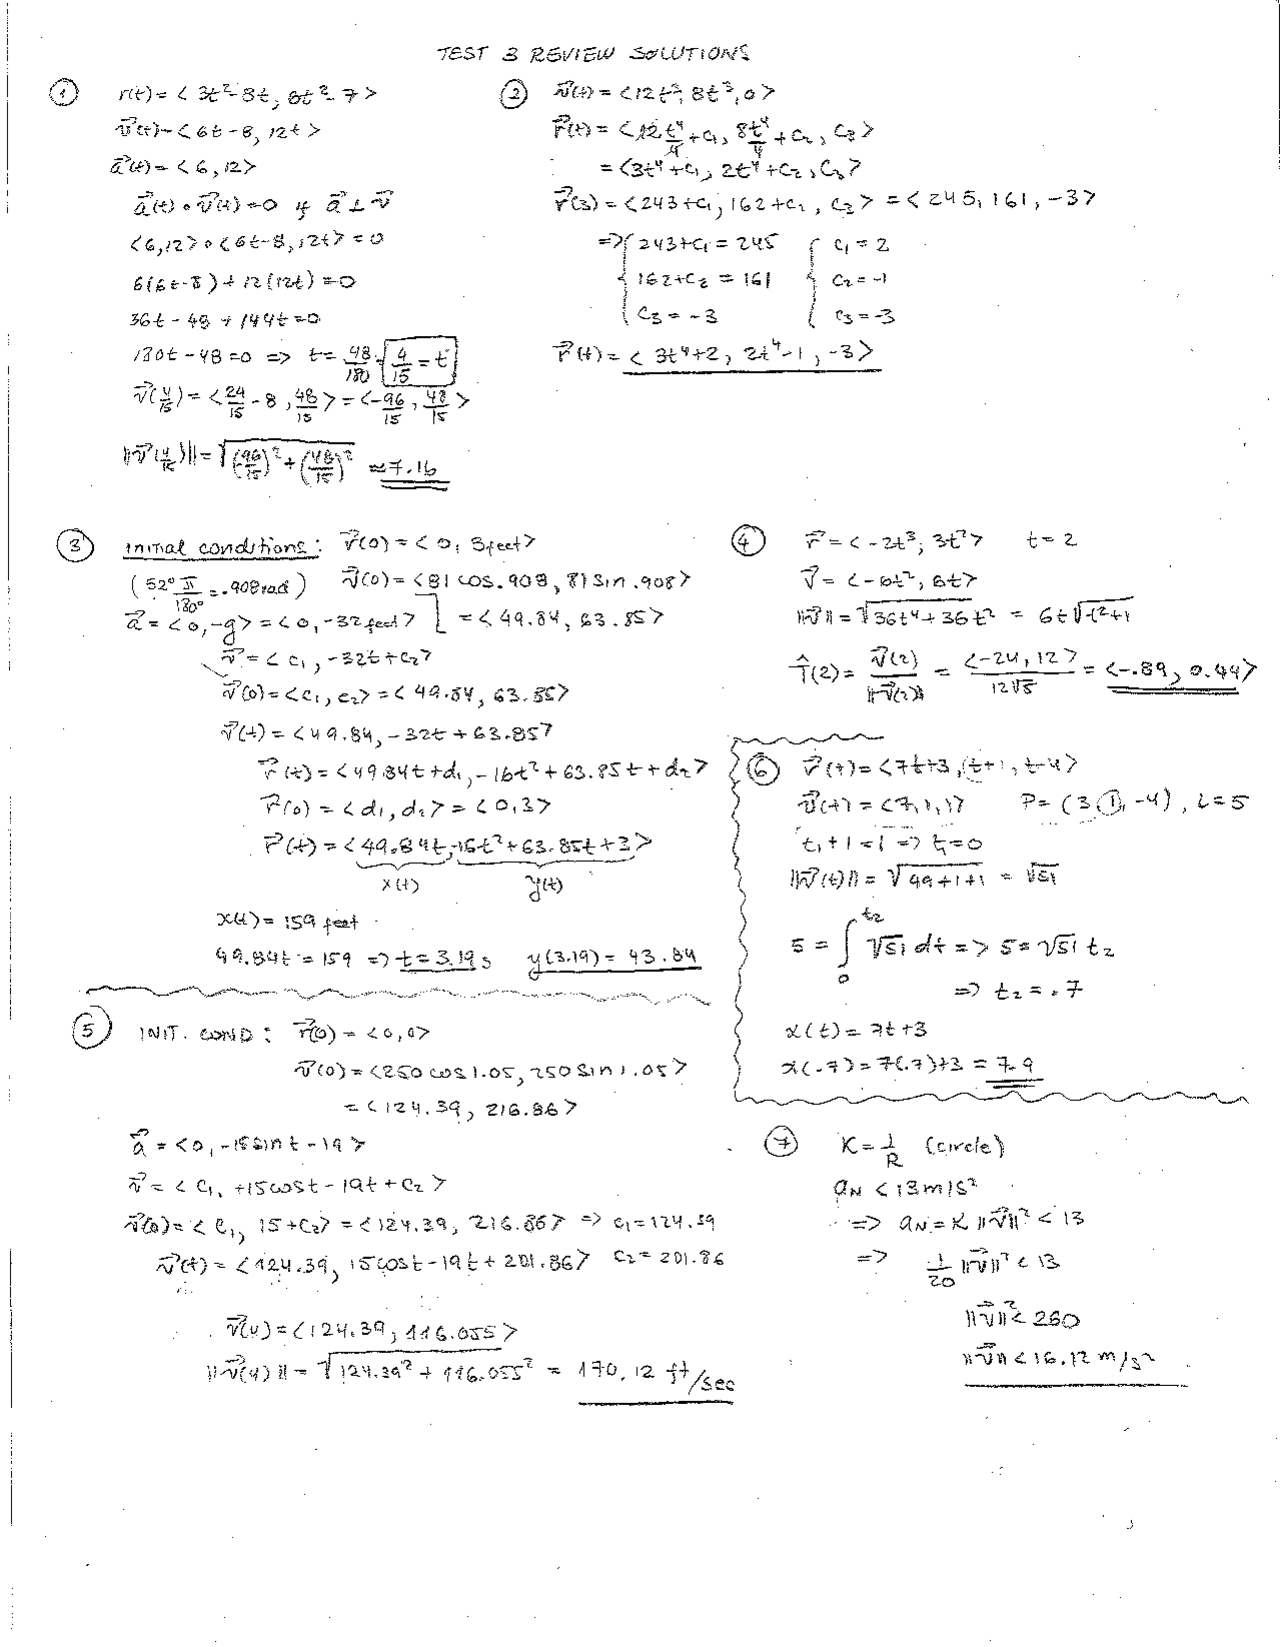 TEST 3 REVIEW SOLUTIONS
① r(t) = < 3t² - 8t, 6t² - 7 >
v⃗(t) = < 6t - 8, 12t >
a⃗(t) = < 6, 12 >
a⃗(t) • v⃗(t) = 0 if a⃗ ⊥ v⃗
< 6, 12 > • < 6t - 8, 12t > = 0
6(6t - 8) + 12(12t) = 0
36t - 48 + 144t = 0
180t - 48 = 0 => t = 48/180 = 4/15 = t
v⃗(4/15) = < 24/15 - 8, 48/15 > = < -96/15, 48/15 >
||v⃗(4/15)|| = √((96/15)² + (48/15)²) ≈ 7.16
② v⃗(t) = < 12t³, 8t³, 0 >
r⃗(t) = < 12 t⁴/4 + c₁, 8 t⁴/4 + c₂, c₃ >
= < 3t⁴ + c₁, 2t⁴ + c₂, c₃ >
r⃗(3) = < 243 + c₁, 162 + c₂, c₃ > = < 245, 161, -3 >
=> { 243 + c₁ = 245 { c₁ = 2
162 + c₂ = 161 c₂ = -1
c₃ = -3 c₃ = -3
r⃗(t) = < 3t⁴ + 2, 2t⁴ - 1, -3 >
③ initial conditions: r⃗(0) = < 0, 3 feet >
(52° π/180° = .908 rad) v⃗(0) = < 81 cos .908, 81 sin .908 >
a⃗ = < 0, -g > = < 0, -32 feet > = < 49.84, 63.85 >
v⃗ = < c₁, -32t + c₂ >
v⃗(0) = < c₁, c₂ > = < 49.84, 63.85 >
v⃗(t) = < 49.84, -32t + 63.85 >
r⃗(t) = < 49.84t + d₁, -16t² + 63.85t + d₂ >
r⃗(0) = < d₁, d₂ > = < 0, 3 >
r⃗(t) = < 49.84t, -16t² + 63.85t + 3 >
x(t) y(t)
x(t) = 159 feet
49.84t = 159 => t = 3.19 s y(3.19) = 43.84
④ r⃗ = < -2t³, 3t² > t = 2
v⃗ = < -6t², 6t >
||v⃗|| = √(36t⁴ + 36t²) = 6t√(t² + 1)
T̂(2) = v⃗(2)/||v⃗(2)|| = < -24, 12 >/12√5 = < -.89, 0.44 >
⑥ r⃗(t) = < 7t + 3, t + 1, t - 4 >
v⃗(t) = < 7, 1, 1 > P = (3, 1, -4), L = 5
t₁ + 1 = 1 => t₁ = 0
||v⃗(t)|| = √(49 + 1 + 1) = √51
5 = ∫₀^t₂ √51 dt => 5 = √51 t₂
=> t₂ = .7
x(t) = 7t + 3
x(.7) = 7(.7) + 3 = 7.9
⑤ INIT. COND: r⃗(0) = < 0, 0 >
v⃗(0) = < 250 cos 1.05, 250 sin 1.05 >
= < 124.39, 216.86 >
a⃗ = < 0, -15 sin t - 19 >
v⃗ = < c₁, +15 cos t - 19t + c₂ >
v⃗(0) = < c₁, 15 + c₂ > = < 124.39, 216.86 > => c₁ = 124.39
v⃗(t) = < 124.39, 15 cos t - 19t + 201.86 > c₂ = 201.86
v⃗(4) = < 124.39, 116.055 >
||v⃗(4)|| = √(124.39² + 116.055²) = 170.12 ft/sec
⑦ K = 1/R (circle)
a_N < 13 m/s²
=> a_N = K ||v⃗||² < 13
=> 1/20 ||v⃗||² < 13
||v⃗||² < 260
||v⃗|| < 16.12 m/s²